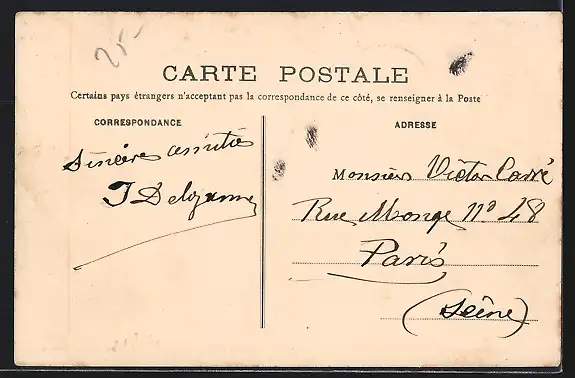 25-
CARTE POSTALE
Certains pays étrangers n'acceptant pas la correspondance de ce côté, se renseigner à la Poste
CORRESPONDANCE
Sincères amitiés
ADRESSE
Monsieur Victor Carré
Rue Monge N° 48
Paris
(Seine)